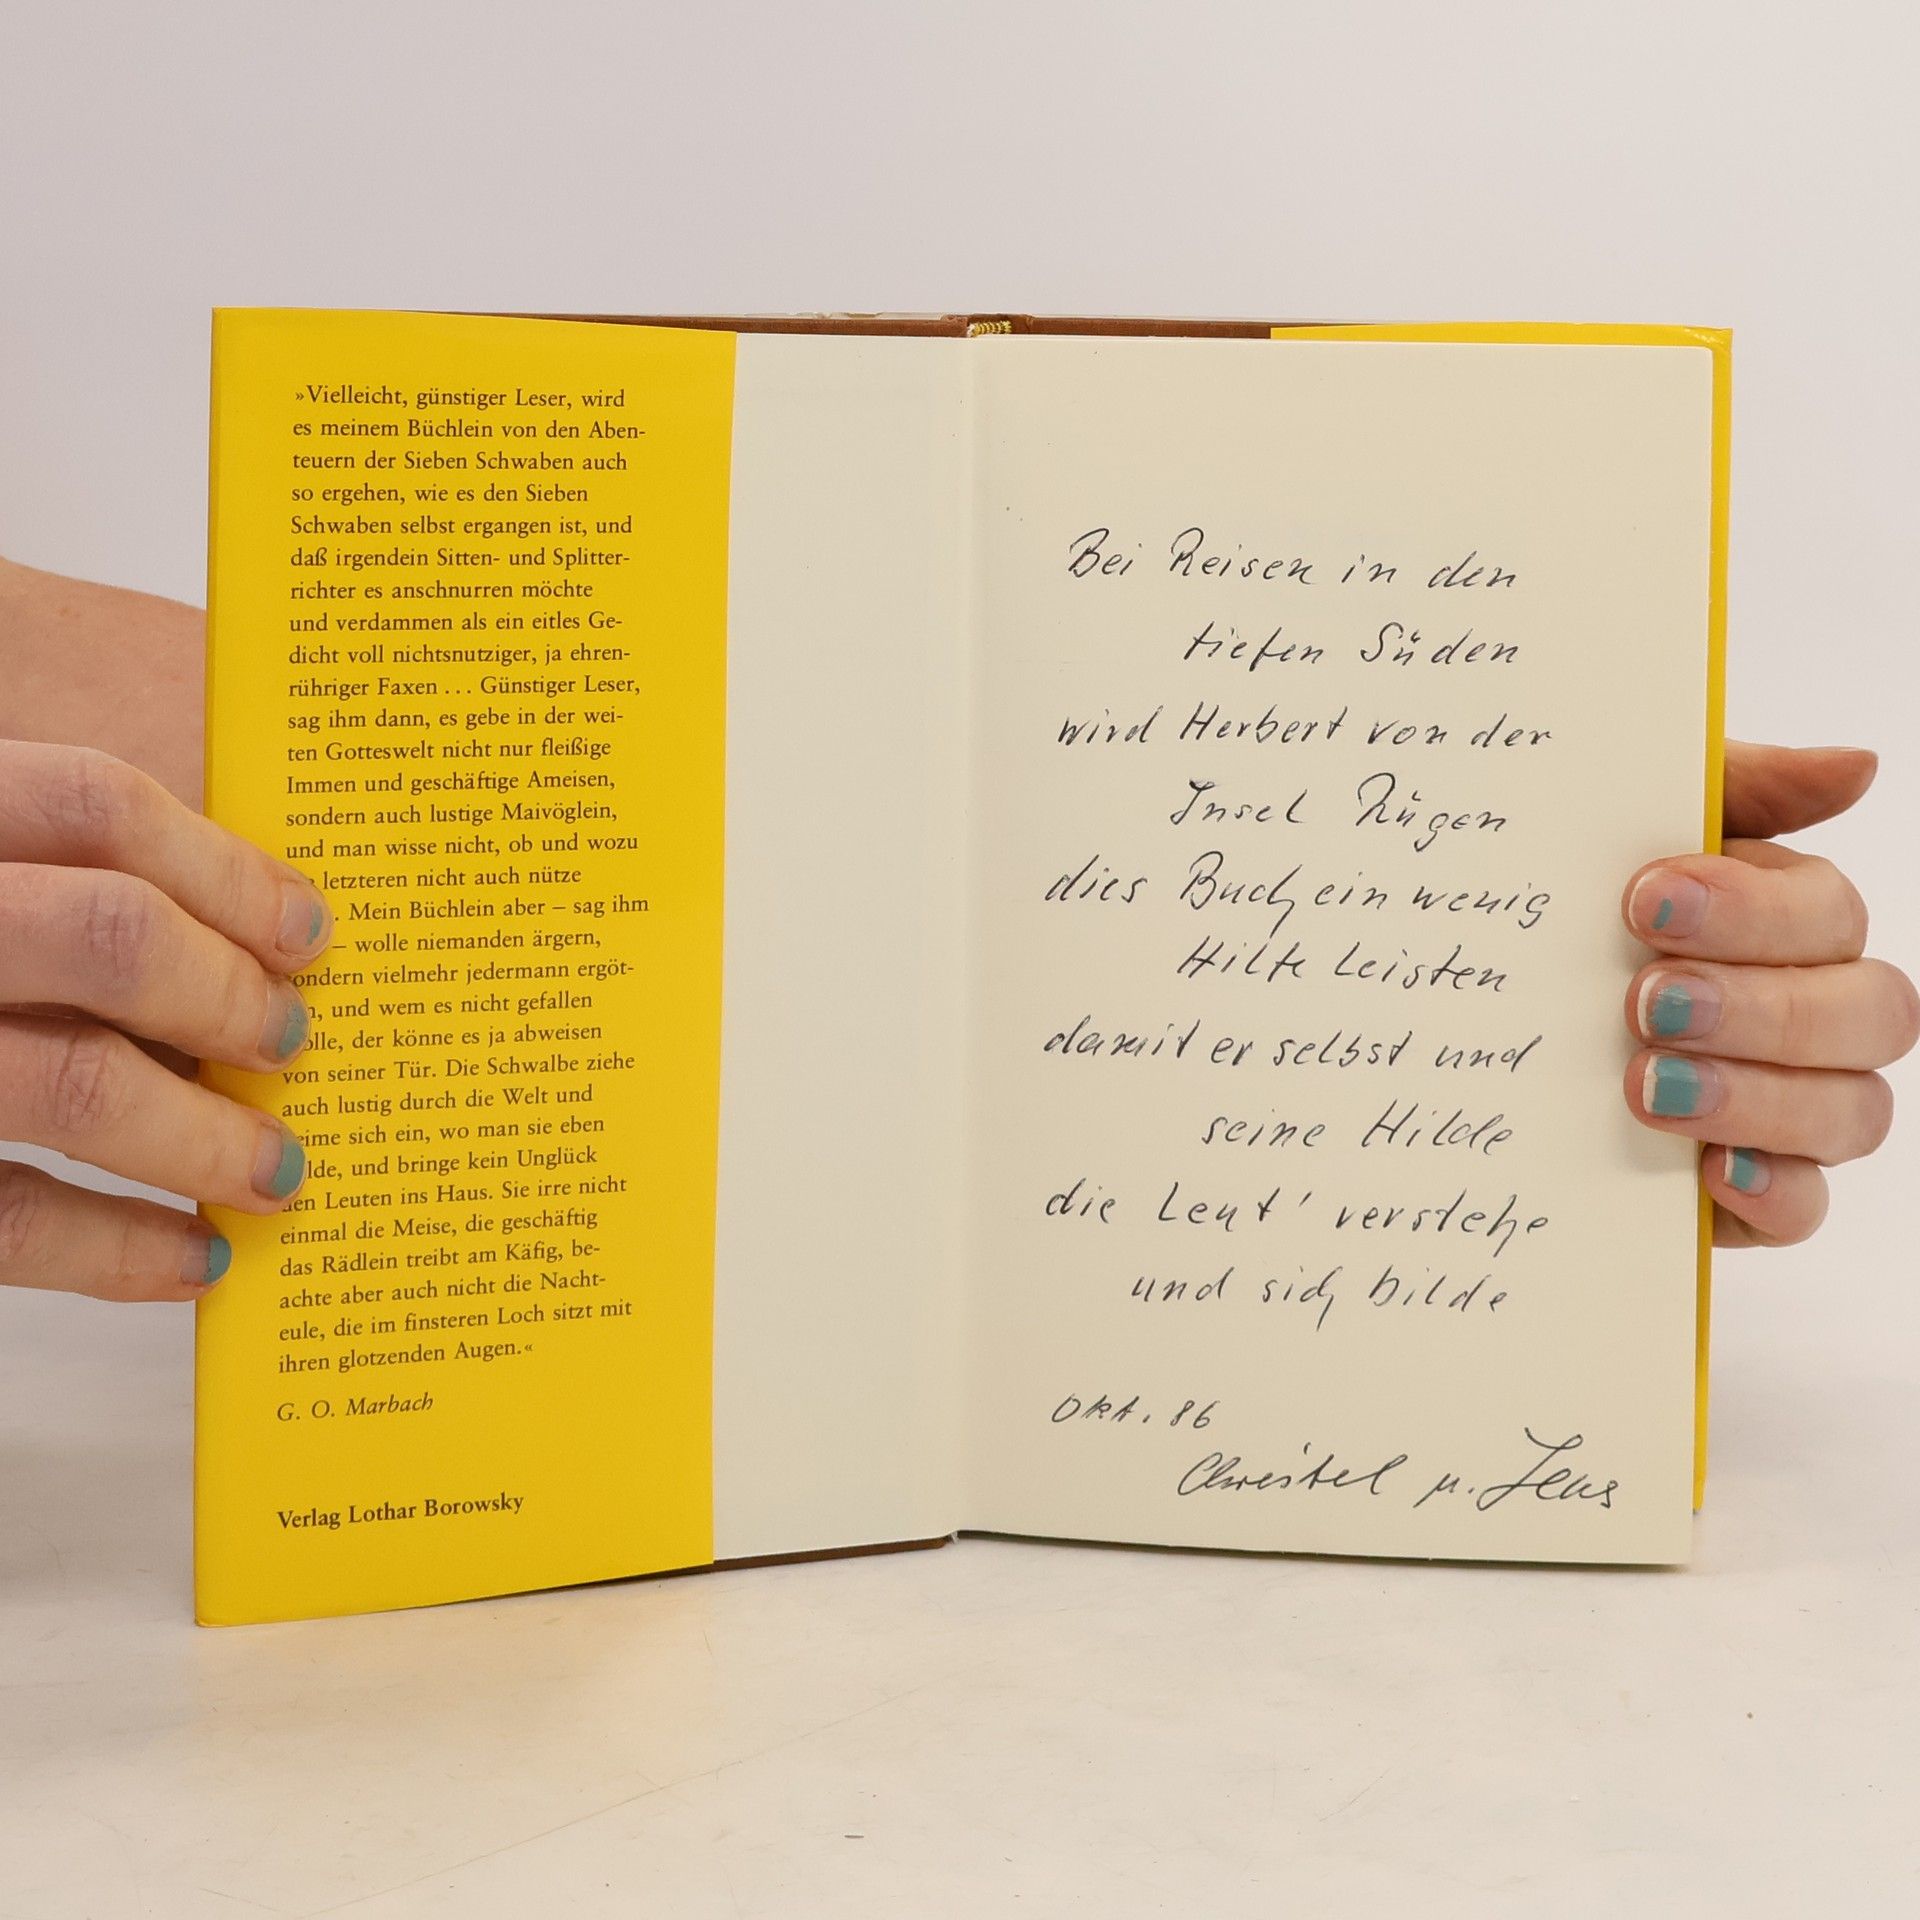 »Vielleicht, günstiger Leser, wird
es meinem Büchlein von den Aben-
teuern der Sieben Schwaben auch
so ergehen, wie es den Sieben
Schwaben selbst ergangen ist, und
daß irgendein Sitten- und Splitter-
richter es anschnurren möchte
und verdammen als ein eitles Ge-
dicht voll nichtsnutziger, ja ehren-
rühriger Faxen ... Günstiger Leser,
sag ihm dann, es gebe in der wei-
ten Gotteswelt nicht nur fleißige
Immen und geschäftige Ameisen,
sondern auch lustige Maivöglein,
und man wisse nicht, ob und wozu
letzteren nicht auch nütze
. Mein Büchlein aber – sag ihm
– wolle niemanden ärgern,
sondern vielmehr jedermann ergöt-
und wem es nicht gefallen
der könne es ja abweisen
von seiner Tür. Die Schwalbe ziehe
auch lustig durch die Welt und
sich ein, wo man sie eben
und bringe kein Unglück
den Leuten ins Haus. Sie irre nicht
einmal die Meise, die geschäftig
das Rädlein treibt am Käfig, be-
achte aber auch nicht die Nacht-
eule, die im finsteren Loch sitzt mit
ihren glotzenden Augen.«
G. O. Marbach
Verlag Lothar Borowsky
Bei Reisen in den
tiefen Süden
wird Herbert von der
Insel Rügen
dies Buch ein wenig
Hilfe leisten
damit er selbst und
seine Hilde
die Leut' verstehe
und sich bilde
Okt. 86
Christel u. Jens